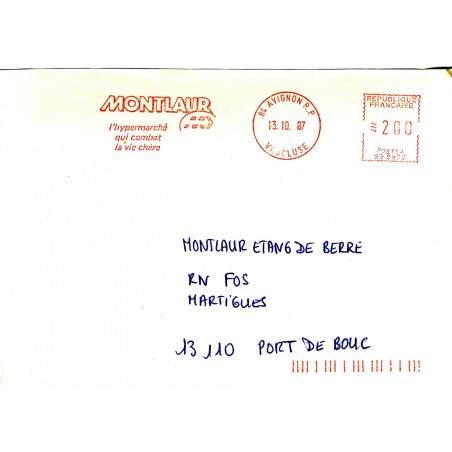 MONTLAUR
l'hypermarché
qui combat
la vie chère
84 AVIGNON R.P
13.10.87
VAUCLUSE
REPUBLIQUE
FRANCAISE
200
POSTES
MONTLAUR ETANG DE BERRE
RN FOS
MARTIGUES
13 110 PORT DE BOUC